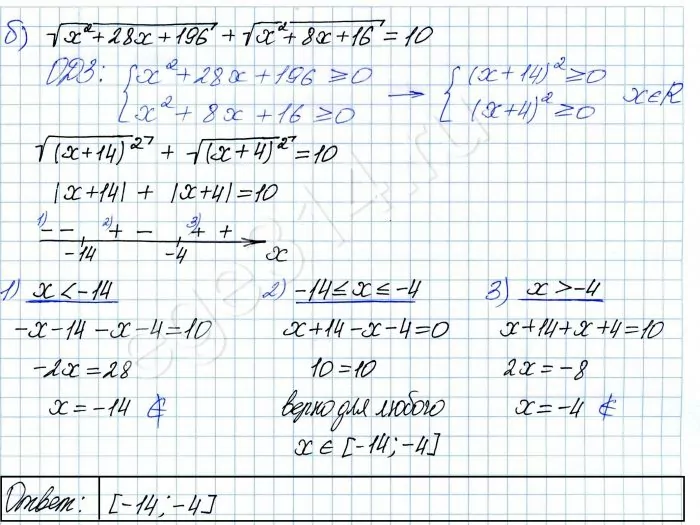 б) √(x²+28x+196) + √(x²+8x+16) = 10
ОДЗ: { x²+28x+196 ≥ 0 → { (x+14)² ≥ 0 x∈R
x²+8x+16 ≥ 0 (x+4)² ≥ 0
√((x+14)²) + √((x+4)²) = 10
|x+14| + |x+4| = 10
1) – – 2) + – 3) + +
-14 -4 x
1) x < -14
-x-14-x-4=10
-2x=28
x=-14 ∉
2) -14 ≤ x ≤ -4
x+14-x-4=0
10=10
верно для любого
x ∈ [-14; -4]
3) x > -4
x+14+x+4=10
2x=-8
x=-4 ∉
Ответ: [-14; -4]
ege314.ru